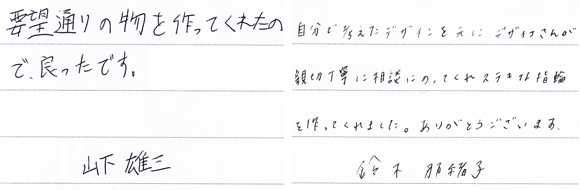 要望通りの物を作ってくれたの
で、良ったです。
山下 雄三
自分で考えたデザインを元に デザイナさんが
親切丁寧に相談にのってくれステキな指輪
を作ってくれました。ありがとうございます。
鈴木 緒子